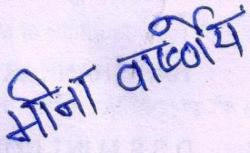 मीना वार्ष्णेय